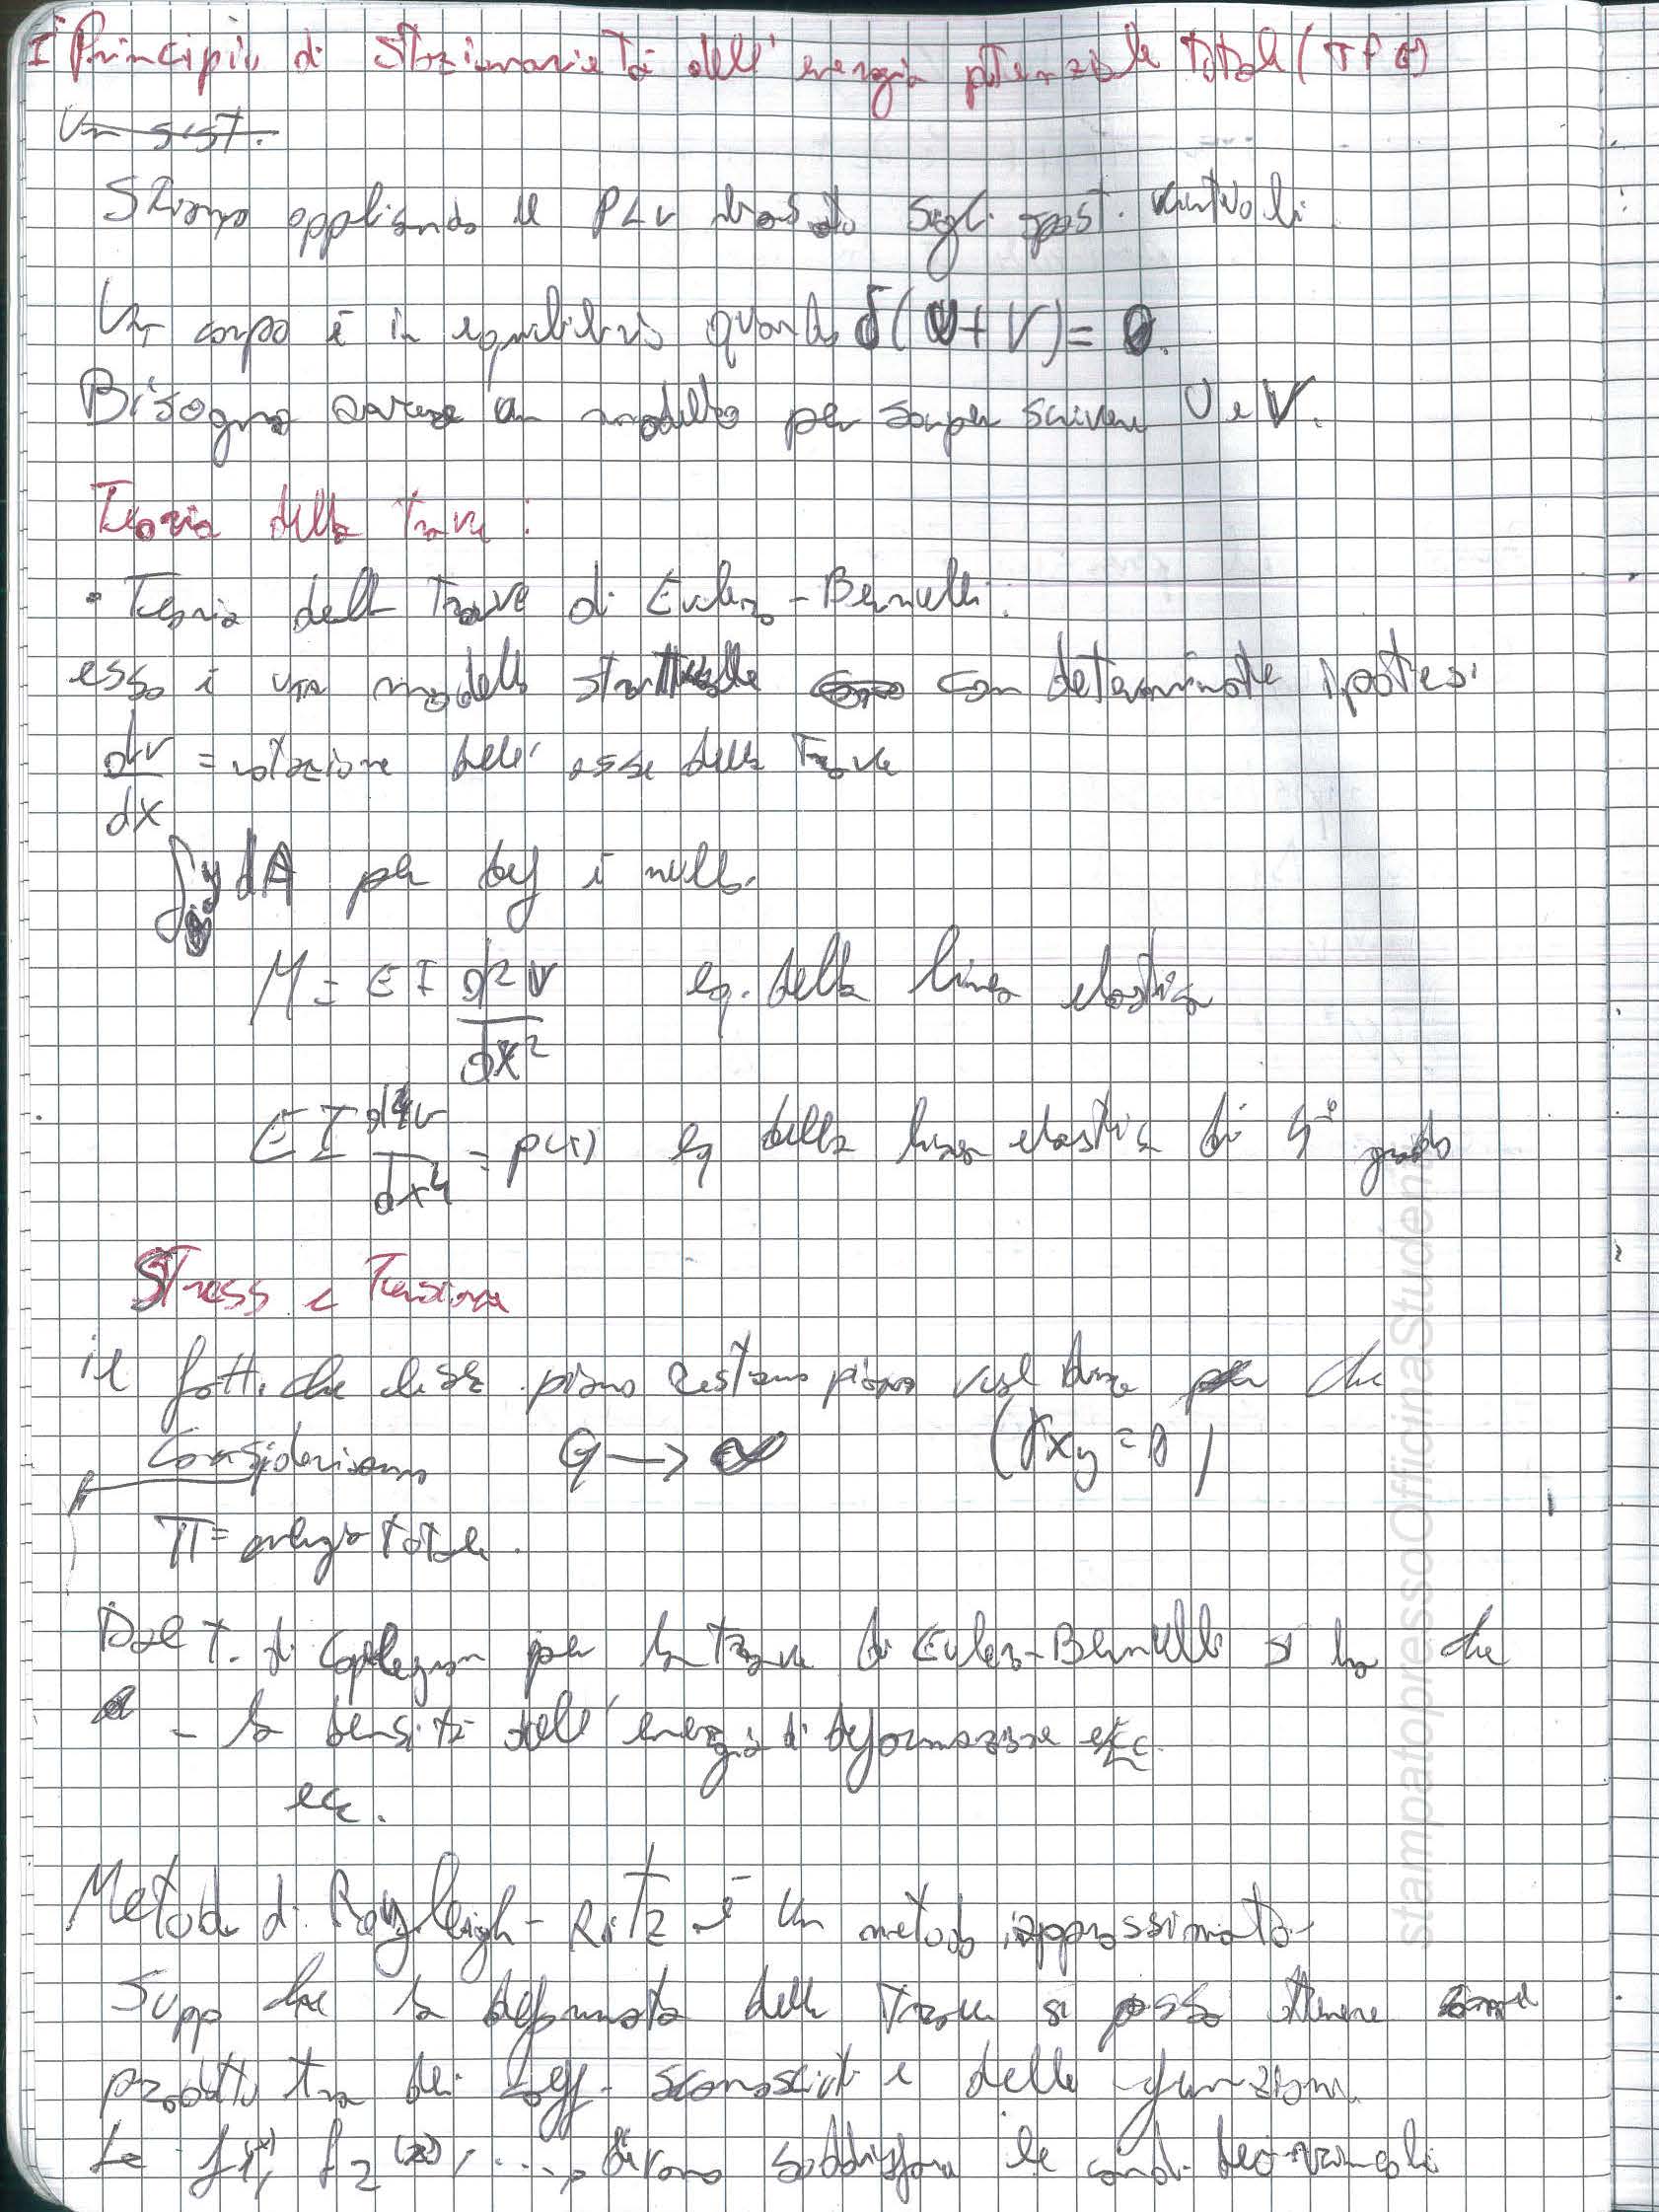 Principio di stazionarietà dell'energia potenziale totale (TPE)
Un sist.
Stiamo applicando il PLV basato sugli spost. virtuali
Un corpo è in equilibrio quando δ(U+V)=0.
Bisogna avere un modello per saper scrivere U e V.
Teoria della trave:
• Teoria della Trave di Eulero-Bernulli.
esso è un modello strutturale con determinate ipotesi
dv/dx = rotazione dell'asse della Trave
∫ y dA per def è nullo.
M = EI d²v/dx² eq. della linea elastica
EI d⁴v/dx⁴ = p(x) eq della linea elastica di 4° grado
Stress e Tensione
il fatto che le sez. piane restano piane vuol dire che
Consideriamo G → ∞ (γxy = 0)
Π = energia totale.
Dal T. di per la trave di Eulero-Bernulli si ha che
- la densità dell'energia di deformazione etc.
ecc.
Metodo di Rayleigh-Ritz è un metodo approssimato.
Supp che la deformata della trave si possa ottenere come
prodotto tra dei coeff. sconosciuti e delle funzioni.
Le f1(x), f2(x), ...., devono soddisfare le cond. dei vincoli
stampatopressoOfficinaStudenti